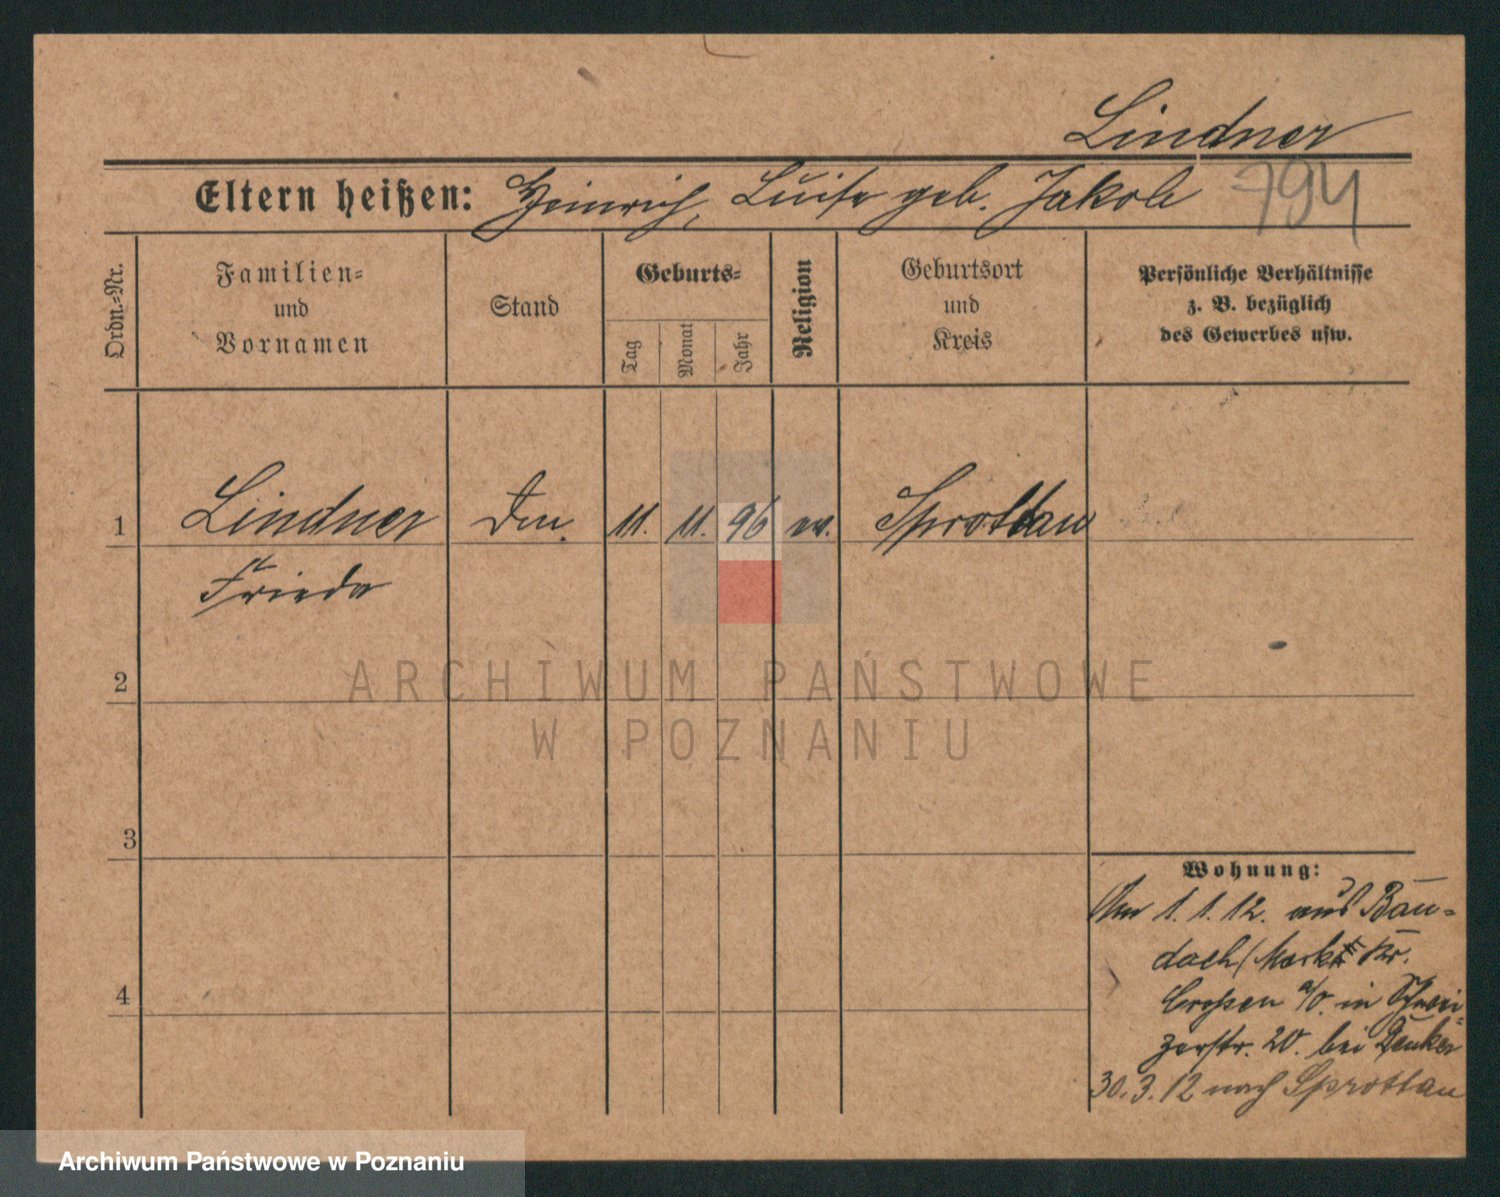 Lindner
Eltern heißen: Heinrich, Luise geb. Jakob 794
Ordn.-Nr.
Familien-
und
Vornamen
Stand
Geburts-
Tag
Monat
Jahr
Religion
Geburtsort
und
Kreis
Persönliche Verhältnisse
z. B. bezüglich
des Gewerbes usw.
1 Lindner 11. 11. 96 ev. Sprottau
Frieda
2
ARCHIWUM PAŃSTWOWE
W POZNANIU
3
Wohnung:
Am 1. 1. 12. aus Bau-
dach/Mark Kr.
4
Crossen a/O. in Schwei-
zerstr. 20. bei
30.3.12 nach Sprottau
Archiwum Państwowe w Poznaniu